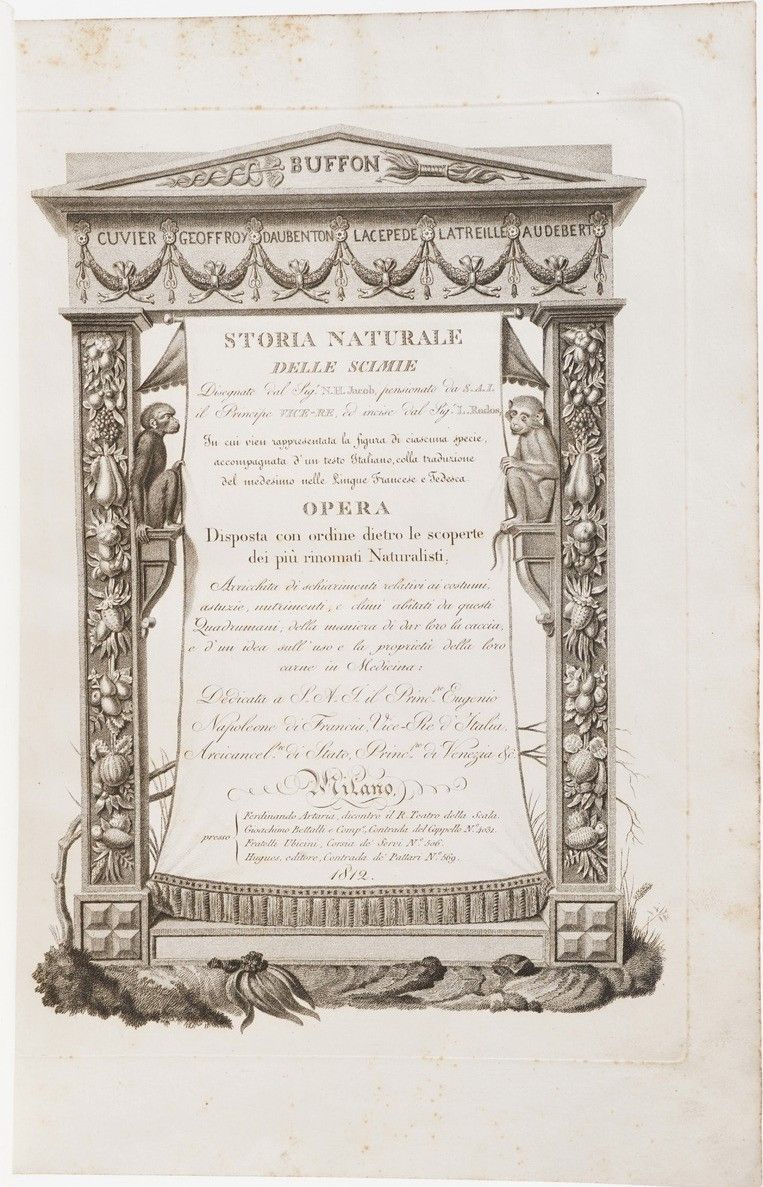 BUFFON
CUVIER GEOFFROY DAUBENTON LACEPEDE LATREILLE AUDEBERT
STORIA NATURALE
DELLE SCIMIE
Disegnate dal Sig.r N. H. Jacob, pensionato da S. A. I.
il Principe VICE-RE, ed incise dal Sig.r L. Rados,
In cui vien rappresentata la figura di ciascuna specie,
accompagnata d'un testo Italiano, colla traduzione
del medesimo nelle Lingue Francese e Tedesca.
OPERA
Disposta con ordine dietro le scoperte
dei più rinomati Naturalisti,
Arricchita di schiarimenti relativi ai costumi,
astuzie, nutrimenti, e climi abitati da questi
Quadrumani, della maniera di dar loro la caccia,
e d'un idea sull'uso e la proprietà della loro
carne in Medicina:
Dedicata a S. A. I. il Princ.pe Eugenio
Napoleone di Francia, Vice-Re d'Italia,
Arcicancel.re di Stato, Princ.pe di Venezia &c.
Milano,
presso
Ferdinando Artaria, dicontro il R. Teatro della Scala.
Gioachimo Bettalli e Comp.o, Contrada del Cappello N.o 4031.
Fratelli Ubicini, Corsia de' Servi N.o 596.
Hugues, editore, Contrada de' Pattari N.o 569.
1812.